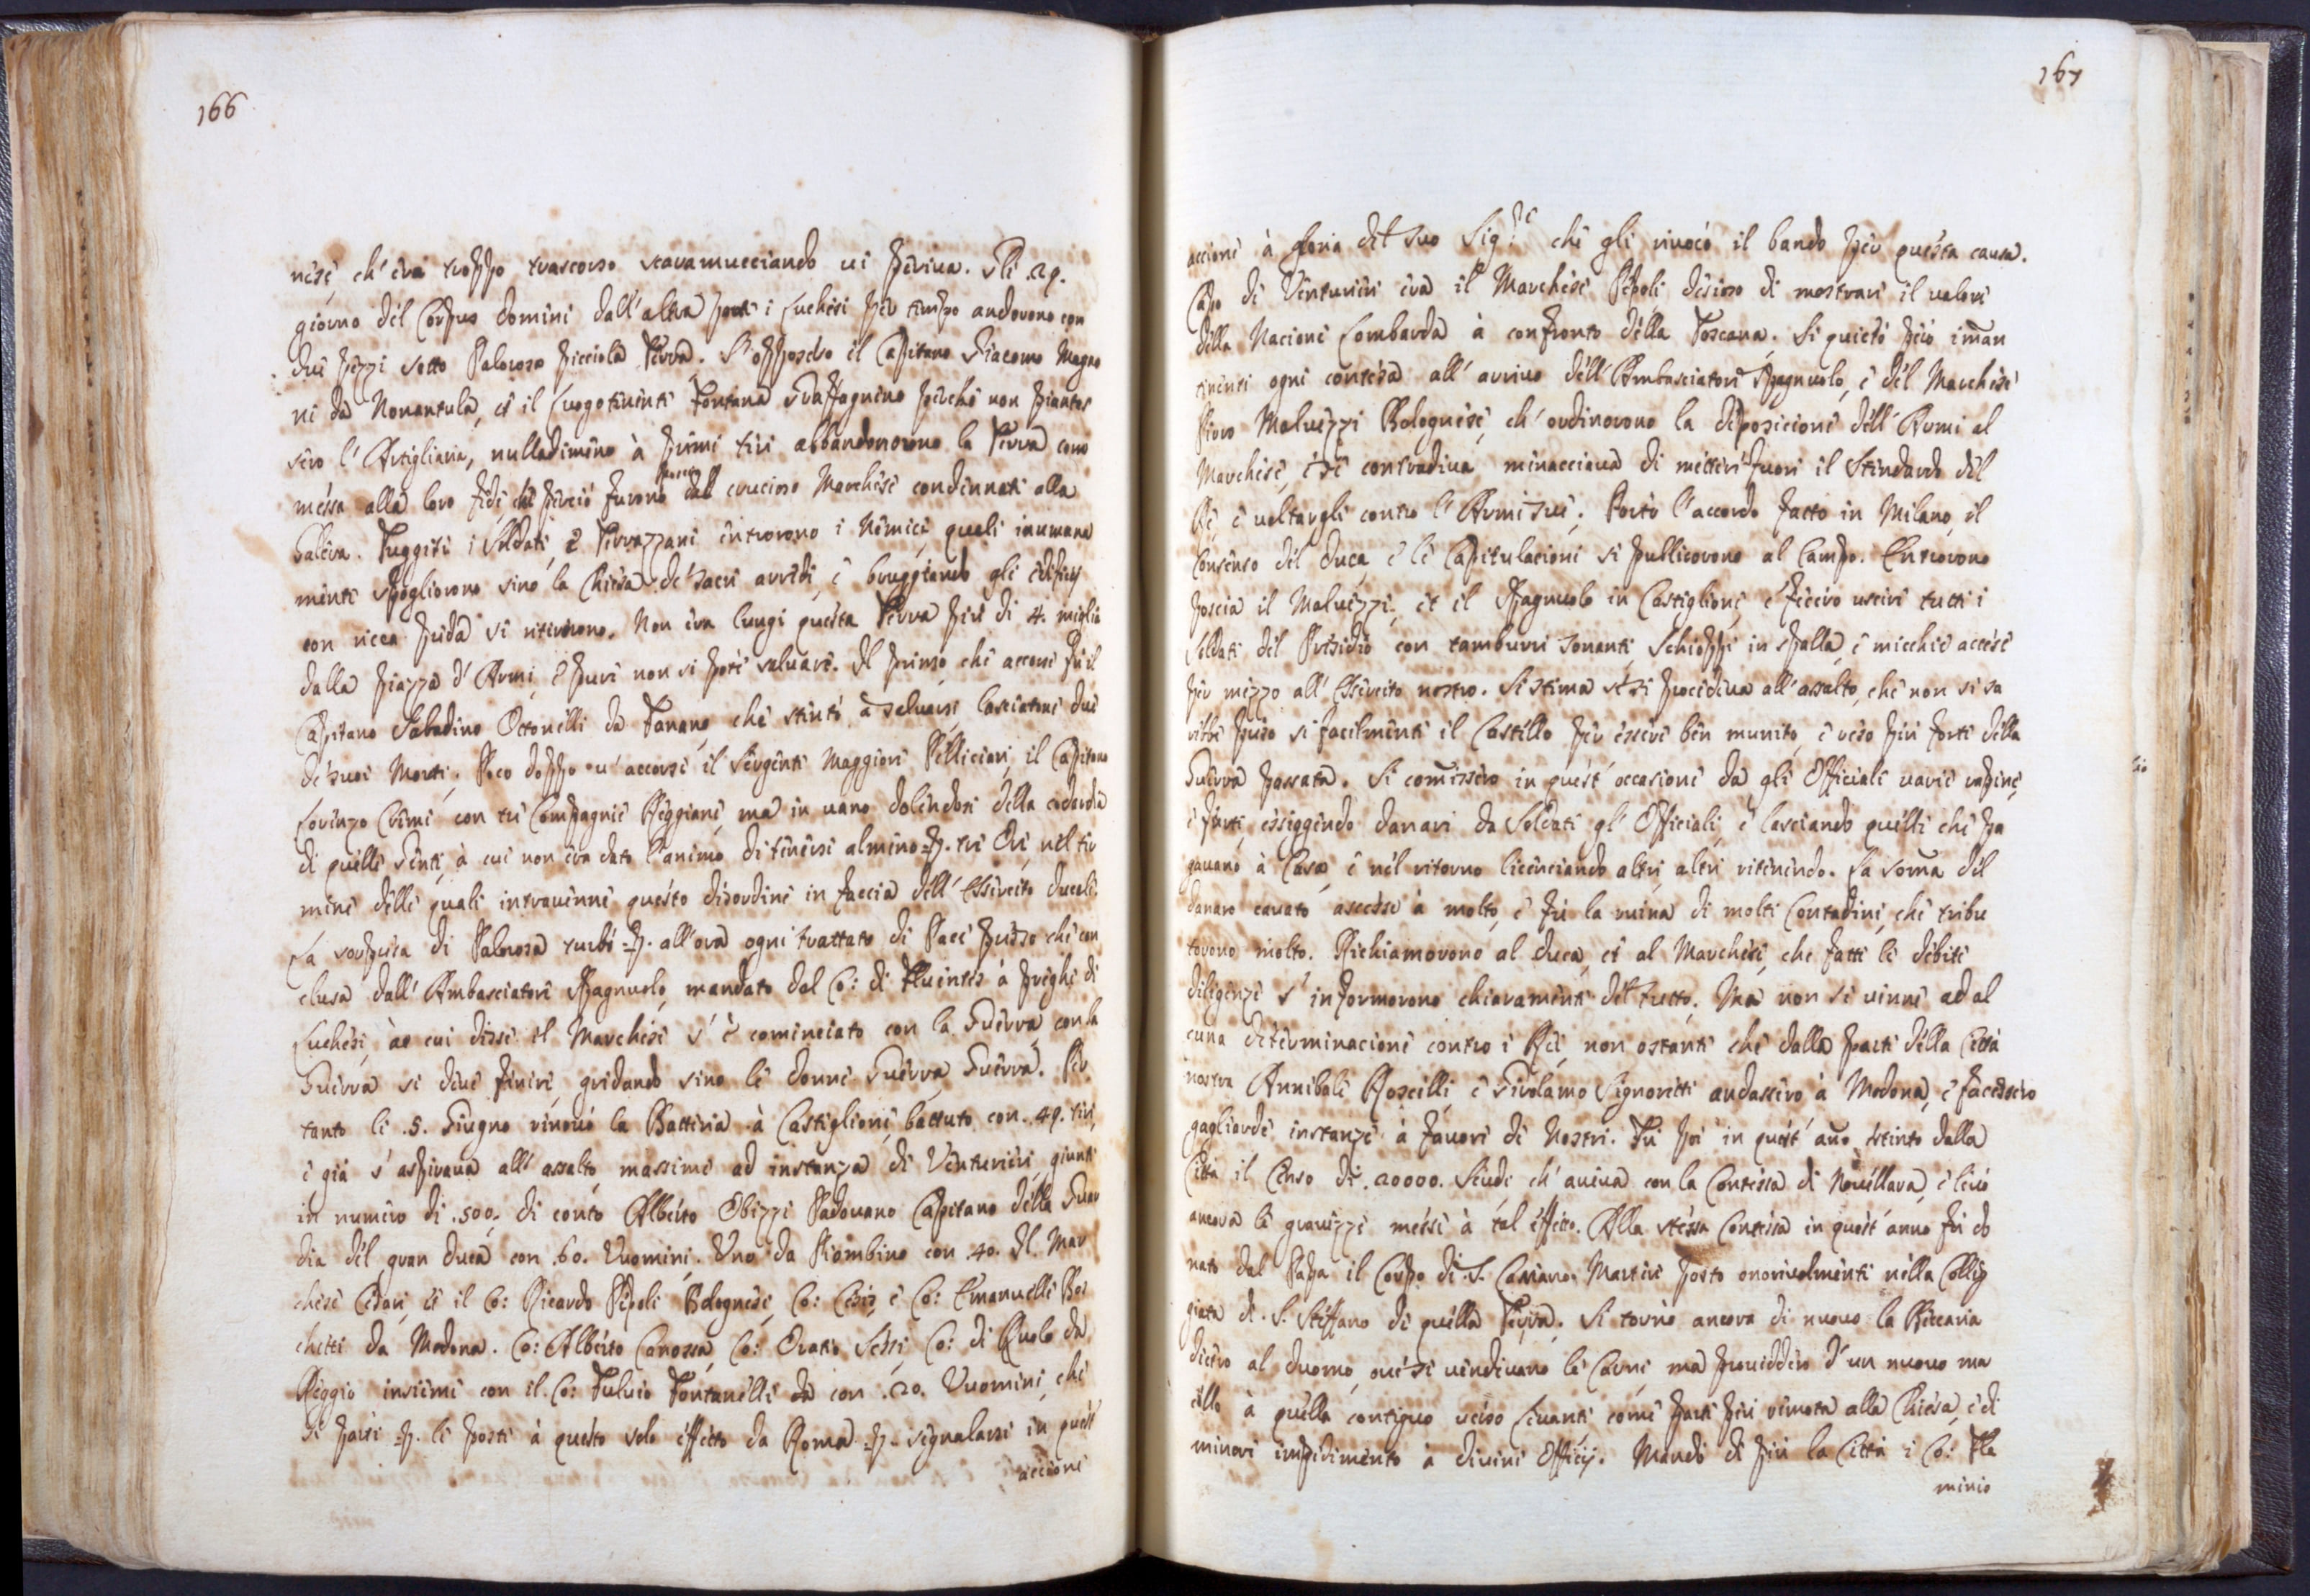 166
nese, ch'era troppo trascorso scaramucciando vi periva. Gli .29.
giorno del Corpus Domini dall'altra parte i Luchesi per tempo andorono con
due pezzi sotto Palorosa picciola Terra. S'opposero il Capitano Giacomo Magna
ni da Nonantula, et il Luogotenente Fontana Graffagnino perche non piantas
sero l'Artigliaria, nulladimeno à primi tiri abbandonorono la Terra com
messa alla loro fede, che perciò furono dal crucioso Marchese condennati alla
Galera. Fuggiti i Soldati, e Terrazzani entrorono i Nemici, quali inumana
mente spogliorono sino la Chiesa de' sacri arredi, e bruggiando gli edificij
con ricca preda si ritirorono. Non era lungi questa Terra più di 4. miglia
dalla piazza d'Armi, e pure non si potè salvare. Il primo, che accorse fù il
Capitano Sabadino Ottonelli da Fanano, che stentò à salvarsi, lasciatone due
de' suoi Morti. Poco doppo v'accorse il Sergente Maggiore Pelliciari, il Capitano
Lorenzo Cremi con tre Compagnie Reggiane, ma in vano dolendosi della codardia
di quelle Genti, à cui non era dato l'animo di tenersi almeno p. tre Ore, nel ter
mine delle quali intravenne questo disordine in faccia dell'Essercito ducale.
La sorpresa di Palorosa turbò p. all'ora ogni trattato di Pace presso che con
clusa dall'Ambasciatore Spagnuolo, mandato dal Co: di Fluentes à preghi di
Luchesi, à cui disse il Marchese s'è cominciato con la Guerra, con la
Guerra si deve finire, gridando sino le donne Guerra, Guerra. Per
tanto li .5. Giugno rinovò la Batteria à Castiglione, battuto con .49. tiri,
e già s'aspirava all'assalto, massime ad instanza di Venturieri, giunti
in numero di .500. di conto Alberto Obizzi Padovano Capitano della Guar
dia del gran Duca con .60. Uomini. Uno da Piombino con .40. Il Mar
chese Cesare, et il Co: Ricardo Pepoli Bolognese, Co: Cesis, e Co: Emanuelle Bos
chetti da Modena. Co: Alberto Canossa, Co: Oratio Sessi, Co: di Ruolo da
Reggio insieme con il Co: Fulvio Fontanelli con .20. Uomini, che
si partì p. le poste à questo solo effetto da Roma p. segnalarsi in quest'
accione
167
accione à gloria del suo Sig.re che gli rivocò il bando per questa causa.
Capo di Venturieri era il Marchese Pepoli desioso di mostrare il valore
della Nacione Lombarda à confronto della Toscana. Si quietò però iman
tinenti ogni contesa all'arrivo dell'Ambasciatore Spagnuolo, e del Marchese
Piero Malvezzi Bolognese, ch'ordinorono la diposicione dell'Armi al
Marchese, e se contradiva minacciava di mettere fuori il Stendardo del
Rè, e voltargli contro l'Armi sue. Portò l'accordo fatto in Milano, il
Consenso del Duca, e le Capitulacioni si publicorono al Campo. Entrorono
poscia il Malvezzi, et il Spagnuolo in Castiglione, e fecero uscire tutti i
Soldati del Presidio con tamburri sonanti, Schioppi in spalla, e micchie accese
per mezzo all'Essercito nostro. Si stima se si procedeva all'assalto, che non si sa
rebbe preso si facilmente il Castello per essere ben munito, e reso più forte della
Guerra passata. Si comissero in quest'occasione da gli Officiali varie rapine,
e furti, essiggendo danari da Soldati gl'Officiali, e lasciando quelli che pa
gavano à Casa, e nel ritorno licenciando altri, altri ritenendo. La soma del
danaro cavato ascese à molto, e fù la ruina di molti Contadini, che tribu
torono molto. Richiamorono al Duca, et al Marchese, che fatte le debite
diligenze s'informorono chiaramente del tutto. Ma non si venne ad al
cuna determinacione contro i Rei, non ostante che dalla parte della Città
nostra Annibale Roscelli, e Girolamo Signoretti andassero à Modona, e facessero
gagliarde instanze à favore di Nostri. Fù poi in quest'año estinto dalla
Città il Censo di .20000. Scudi ch'aveva con la Contessa di Novellara, e levò
ancora le gravezze messe à tal effetto. Alla stessa Contessa in quest'anno fù do
nato dal Papa il Corpo di S. Cassiano Martire posto onorevolmente nella Colleg
giata di S. Steffano di quella Terra. Si tornò ancora di nuovo la Beccaria
dietro al Duomo, ove si vendevano le Carni, ma provedero d'un nuovo ma
cello à quella contiguo verso Levante come parte più rimota alla Chiesa, e di
minore impedimento à divini Officij. Mandò di più la Città i Co: Fla
minio